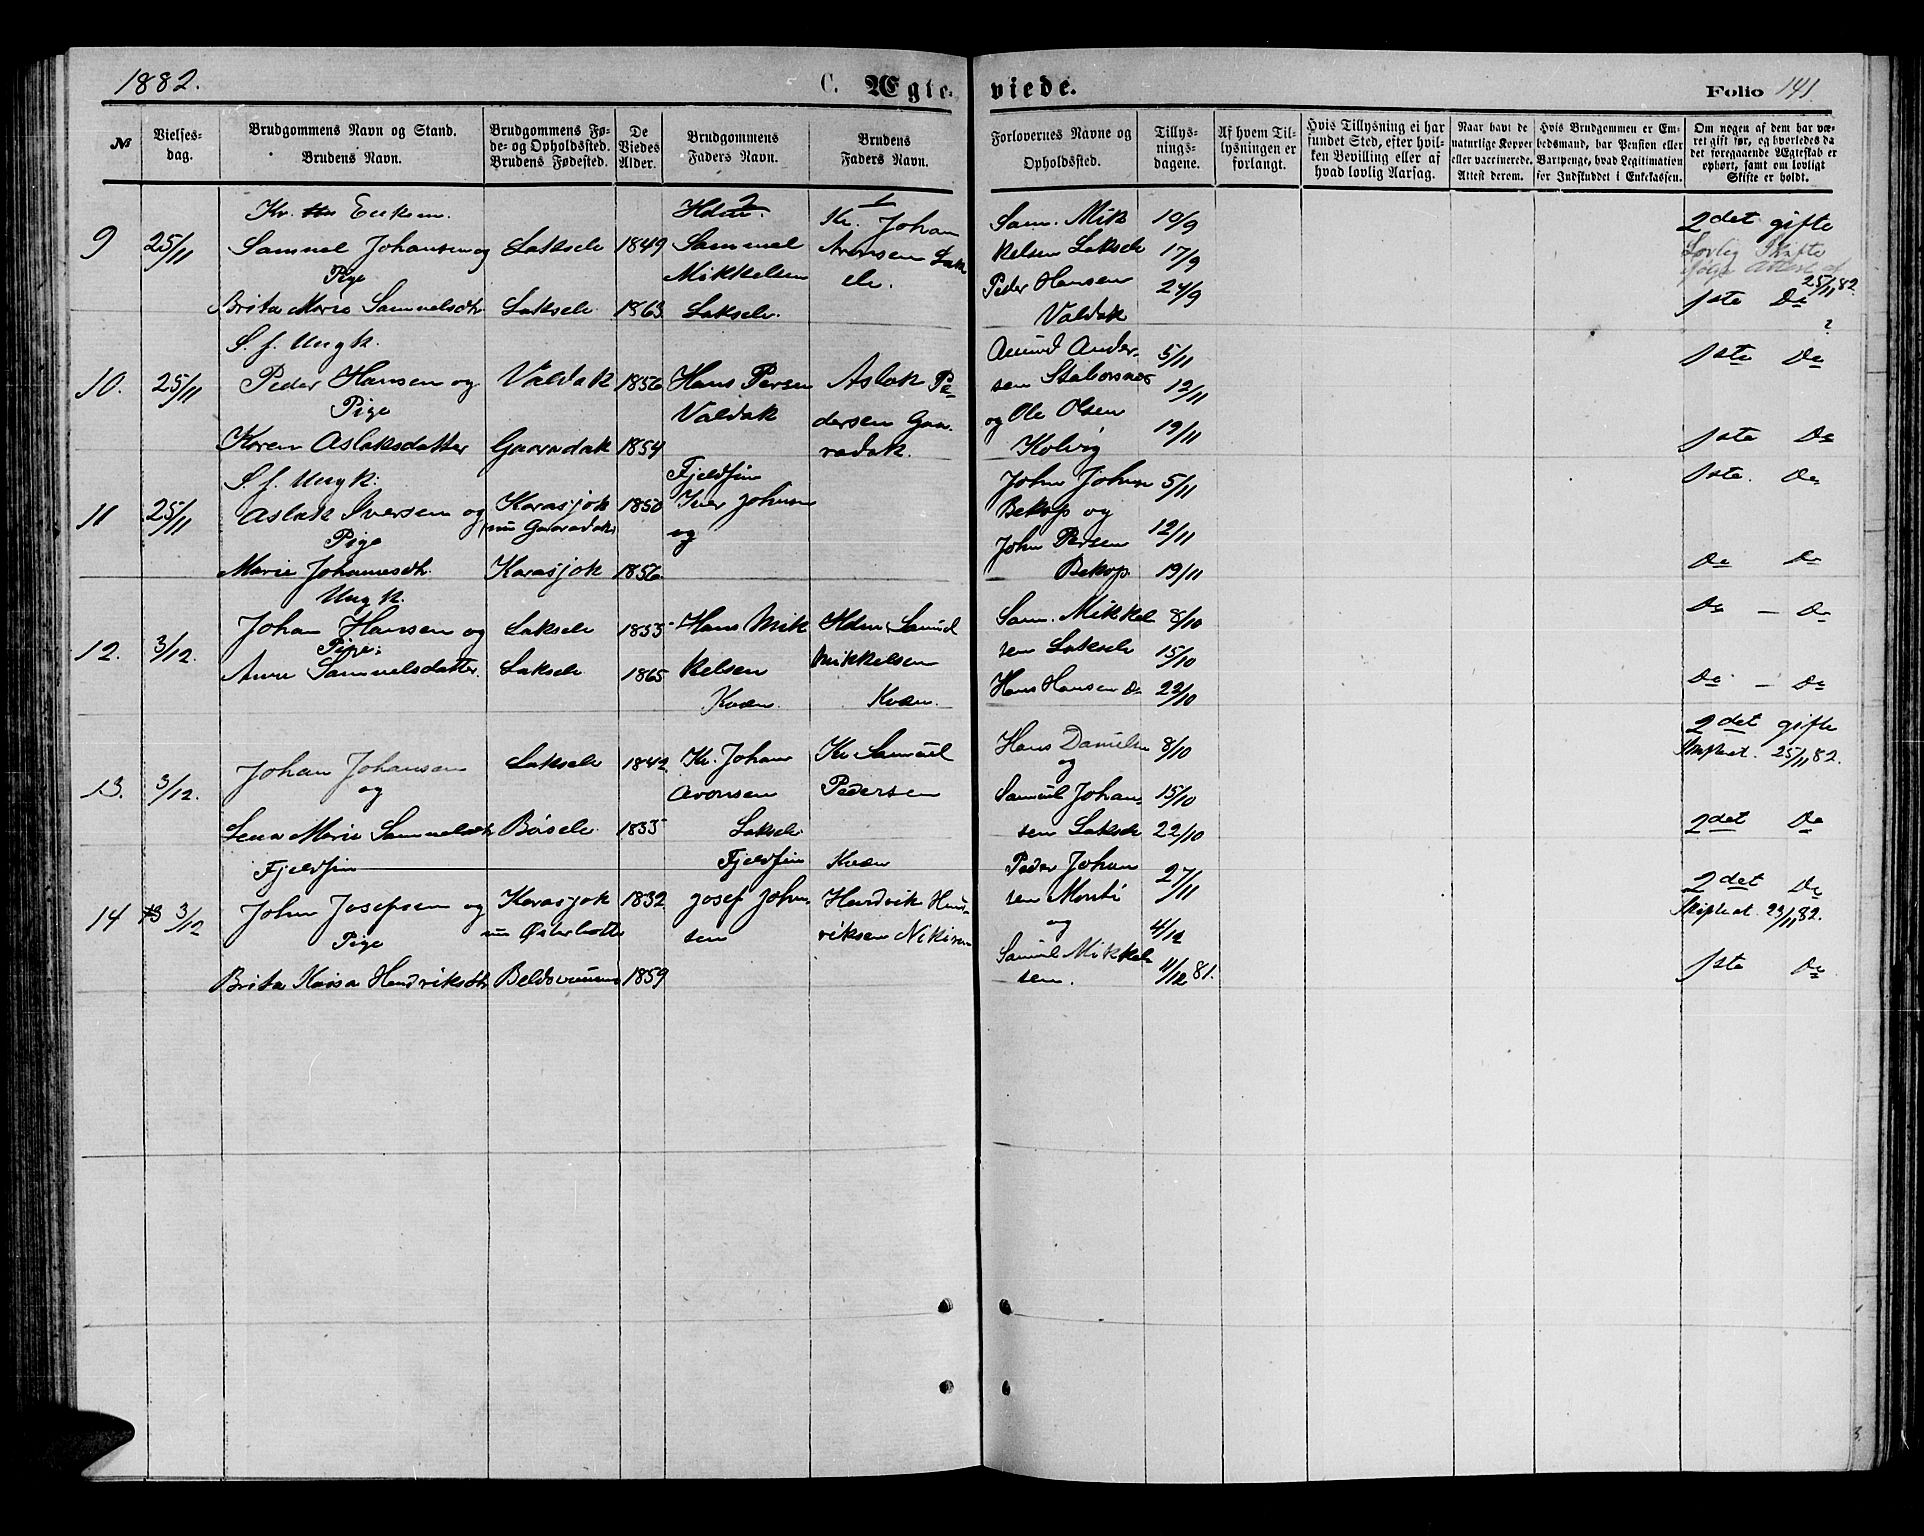 1882.
C. Ægte-
viede.
Folio 141
№
Vielses-
dag.
Brudgommens Navn og Stand.
Brudens Navn.
Brudgommens Fø-
de- og Opholdssted.
Brudens Fødested.
De
Viedes
Alder.
Brudgommens
Faders Navn.
Brudens
Faders Navn.
Forlovernes Navne og
Opholdssted.
Tillys-
nings-
dagene.
Af hvem Til-
lysningen er
forlangt.
Hvis Tillysning ei har
fundet Sted, efter hvil-
ken Bevilling eller af
hvad lovlig Aarsag.
Naar havt de
naturlige Kopper
eller vaccinerede.
Attest derom.
Hvis Brudgommen er Em-
bedsmand, har Pension eller
Vartpenge, hvad Legitimation
for Indskuddet i Enkekassen.
Om nogen af dem har væ-
ret gift før, og hvorledes da
det foregaaende Ægteskab er
ophørt, samt om lovligt
Skifte er holdt.
9
25/11
Kv. Eriksen.
Samuel Johansen og
Pige
Brita Marie Samuelsdtr
Laksele 1849
Laksele 1863
Sammel
Mikkelsen
Laksele.
Kv. Johan
Aronsen Lak
ele.
Sam. Mik
kelsen Laksele
Peder Hansen
Valdak
10/9
17/9
24/9
2det gifte
Lovlig Skifte
ifølge Attest af
25/11 82.
1ste Do
?
10.
25/11
S. f. Ungk.
Peder Hansen og
Pige
Karen Aslaksdatter
Valdak 1856
Gaaradak 1854
Hans Persen
Valdak
Aslak Pe-
dersen Gaa-
radak.
Amund Ander-
sen Staborsnes
og Ole Olsen
Kolvig
5/11
12/11
19/11
1ste Do
1ste Do
11
25/11
S. f. Ungk.
Aslak Iversen og
Pige
Marie Johannesdtr.
Karasjok 1850
nu Gaaradak
Karasjok 1856
Fjeldfin
Iver Johnsen
og
John Johnsen
Bekop og
John Persen
Bekop.
5/11
12/11
19/11
1ste. Do
Do Do
12.
3/12.
Ungk.
Johan Hansen og
Pige.
Anne Samuelsdatter.
Laksele 1855
Laksele 1865
Hans Mik
kelsen
Kvæn.
Hdm. Samuel
Mikkelsen
Kvæn.
Sam. Mikkel
sen Laksele
Hans Hansen Do
8/10
15/10
23/10
Do - Do
Do - Do
13.
3/12.
Johan Johansen
og
Lena Marie Samuelsdtr
Laksele 1842
Børsele 1835
Kv. Johan
Aronsen
Laksele
Kv. Samuel
Pedersen
Hans Danielsen
og
Samuel Johan-
sen Laksele
8/10
15/10
22/10
2det gifte
Skifteat. 25/11 82.
2det Do
14
3/12
Fjeldfin
John Josefsen og
Pige
Brita Kaisa Hendriksdtr
Karasjok 1832
nu Østerbotten
1859
Fjeldfin
Josef John-
sen
Kvæn
Hendrik Hend-
riksen
Peder Johan
sen
og
Samuel Mikkel
sen.
27/11
4/12
11/12 81.
2det Do
Skifteat. 23/11 82.
1ste Do